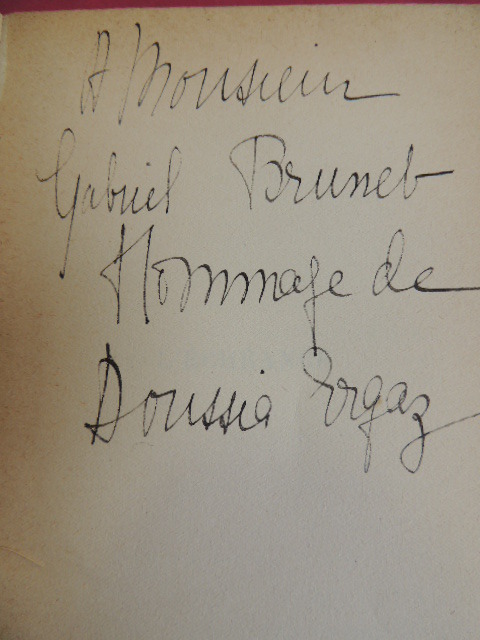 A Monsieur
Gabriel Brunet
Hommage de
Doussia Ergaz